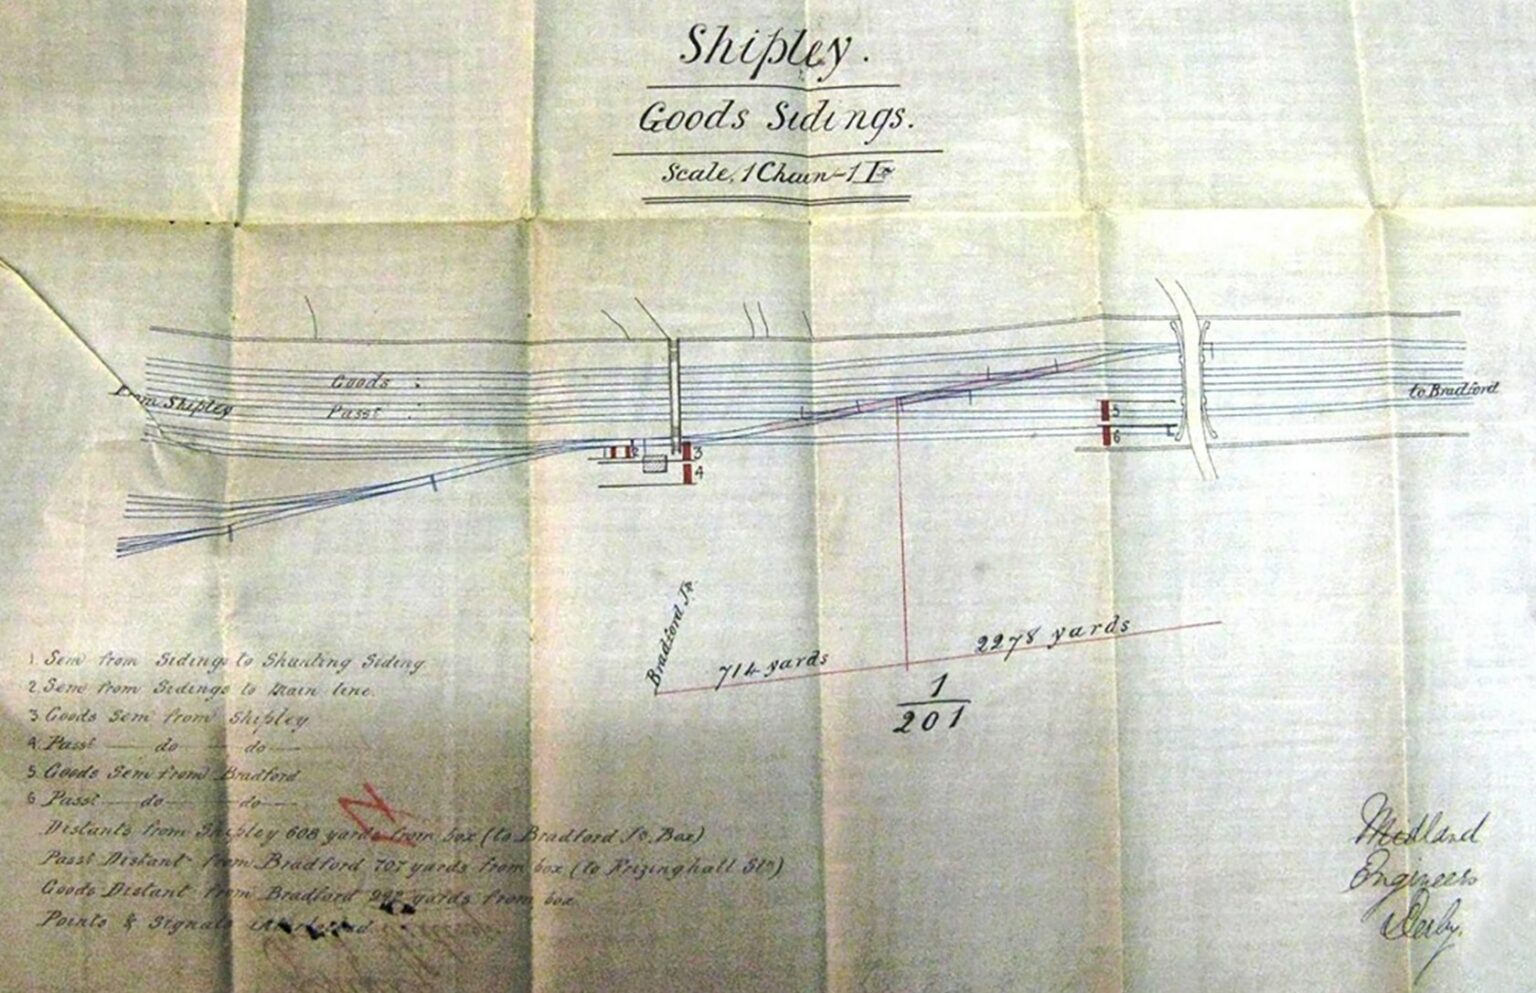 Shipley.
Goods Sidings.
Scale, 1 Chain = 1 In
Goods
Passr
From Shipley
to Bradford
1 2
3
4
5
6
Bradford Jn
714 yards
2278 yards
1
201
1. Sem from Sidings to Shunting Siding.
2. Sem from Sidings to Main line.
3. Goods Sem from Shipley
4. Passr — do — do —
5. Goods Sem from Bradford
6. Passr — do — do —
Distants from Shipley 608 yards from box (to Bradford Jn. Box)
Passr Distant from Bradford 707 yards from box (to Frizinghall Stn)
Goods Distant from Bradford yards from box
Points & Signals interlocked
Midland
Engineers
Derby.